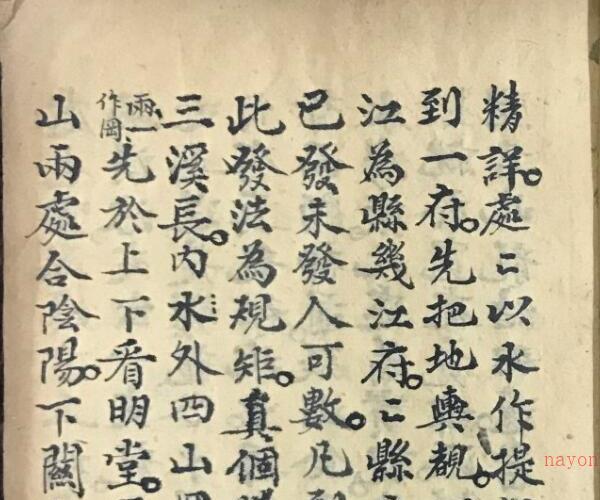 精詳。處〻以水作提
到一府。先把地輿覩。
江為縣幾江府。〻縣
已發未發人可數。凡
此發法為規矩。真個
三溪長。内水外四山
雨一作岡
先於上下看明堂。
山兩處合陰陽。下關
nayon